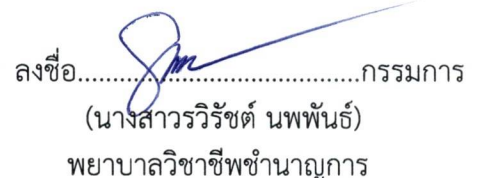 ลงชื่อ................................กรรมการ
(นางสาวรวิรัชต์ นพพันธ์)
พยาบาลวิชาชีพชำนาญการ